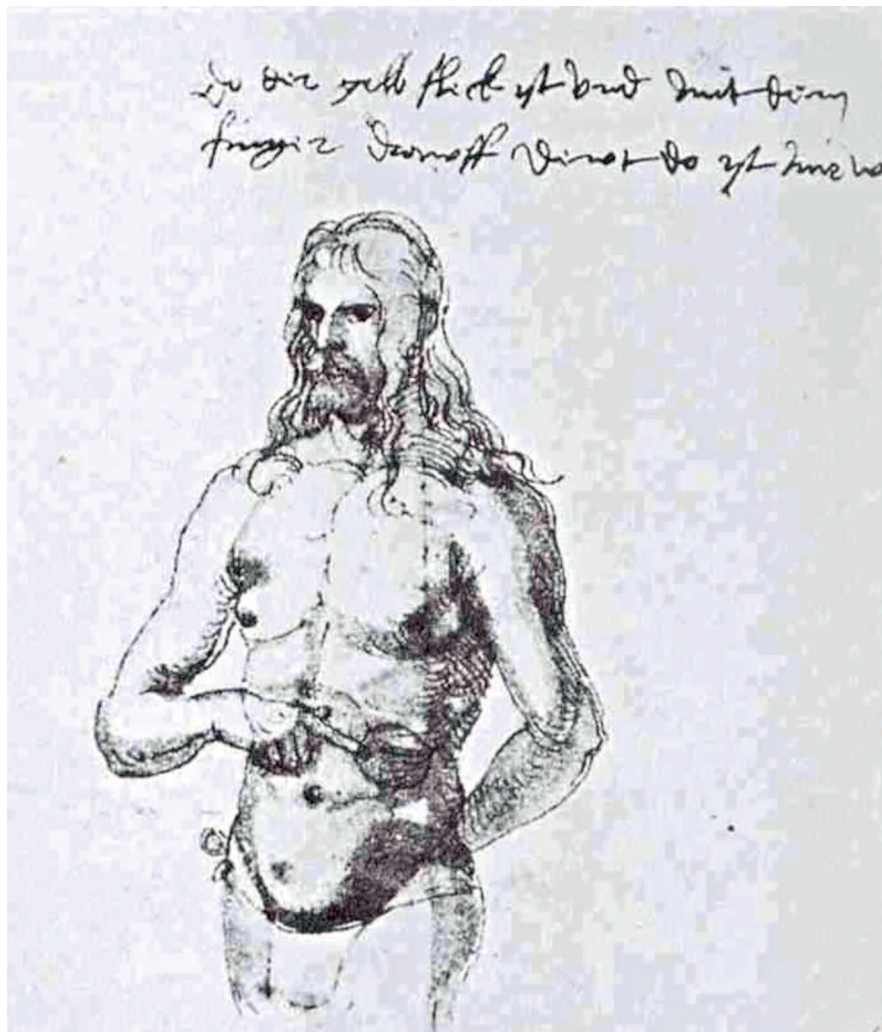 do der gelb fleck yst vnd mit dem
finger drawff dewt do yst mir